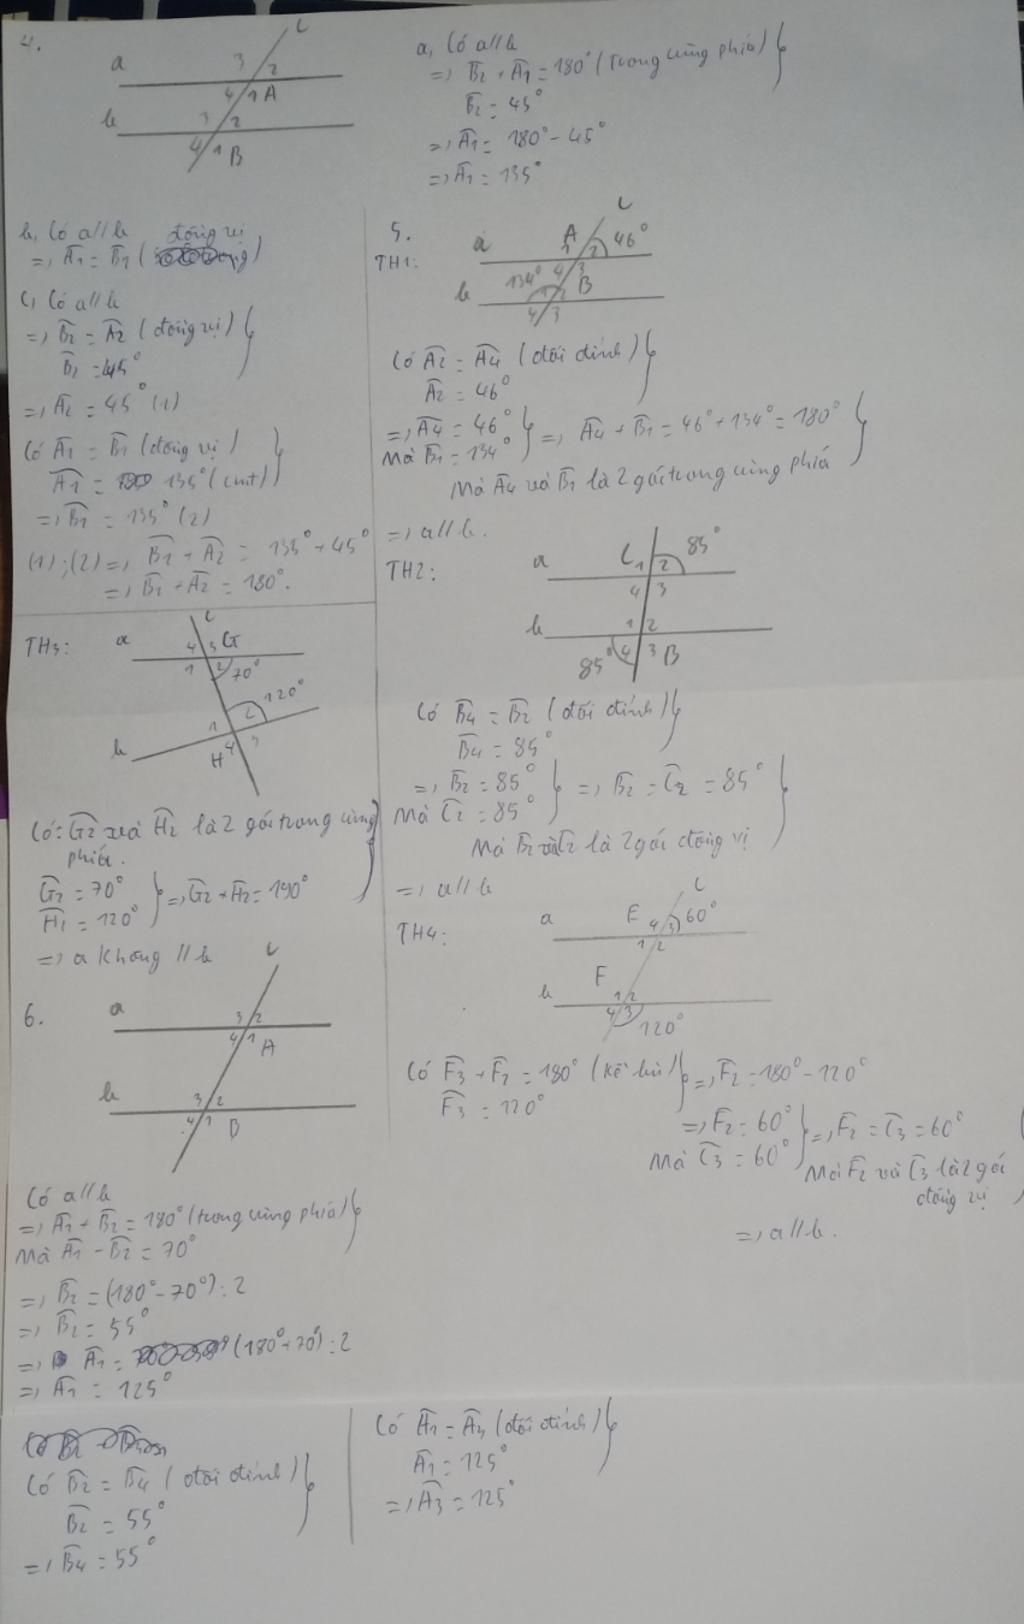 4.
a
b
c
3 2
4 1 A
3 2
4 1 B
a, Có a//b
=> B̂2 + Â1 = 180° (trong cùng phía)
B̂2 = 45°
=> Â1 = 180° - 45°
=> Â1 = 135°
b, Có a//b
đồng vị
=> Â1 = B̂1 ( )
c, Có a//b
=> B̂2 = Â2 (đồng vị)
B̂2 = 45°
=> Â2 = 45° (1)
Có Â1 = B̂1 (đồng vị)
Â1 = 135° (cmt)
=> B̂1 = 135° (2)
(1);(2) => B̂1 + Â2 = 135° + 45°
=> B̂1 + Â2 = 180°.
5.
TH1:
a
b
c
A 46°
1 2
4 3
134° B
1 2
4 3
Có Â2 = Â4 (đối đỉnh)
Â2 = 46°
=> Â4 = 46°
Mà B̂1 = 134°
=> Â4 + B̂1 = 46° + 134° = 180°
Mà Â4 và B̂1 là 2 góc trong cùng phía
=> a//b.
TH2:
a
b
C 1 2 85°
4 3
1 2
85° 4 3 B
Có B̂4 = B̂2 (đối đỉnh)
B̂4 = 85°
=> B̂2 = 85°
Mà Ĉ2 = 85°
=> B̂2 = Ĉ2 = 85°
Mà B̂2 và Ĉ2 là 2 góc đồng vị
=> a//b
TH3:
a
b
c
4 3 G
1 2 70°
120°
1 2
4 3
H
Có: Ĝ2 và Ĥ2 là 2 góc trong cùng
phía.
Ĝ2 = 70°
Ĥ2 = 120°
=> Ĝ2 + Ĥ2 = 190°
=> a không // b
TH4:
a
b
c
E 4 3 60°
1 2
F
1 2
4 3
120°
Có F̂3 + F̂2 = 180° (kề bù)
F̂3 = 120°
=> F̂2 = 180° - 120°
=> F̂2 = 60°
Mà Ê3 = 60°
=> F̂2 = Ê3 = 60°
Mà F̂2 và Ê3 là 2 góc
đồng vị
=> a//b.
6.
a
b
c
3 2
4 1 A
3 2
4 1 B
Có a//b
=> Â1 + B̂2 = 180° (trong cùng phía)
Mà Â1 - B̂2 = 70°
=> B̂2 = (180° - 70°) : 2
=> B̂2 = 55°
=> Â1 = (180° + 70°) : 2
=> Â1 = 125°
Có B̂2 = B̂4 (đối đỉnh)
B̂2 = 55°
=> B̂4 = 55°
Có Â1 = Â3 (đối đỉnh)
Â1 = 125°
=> Â3 = 125°